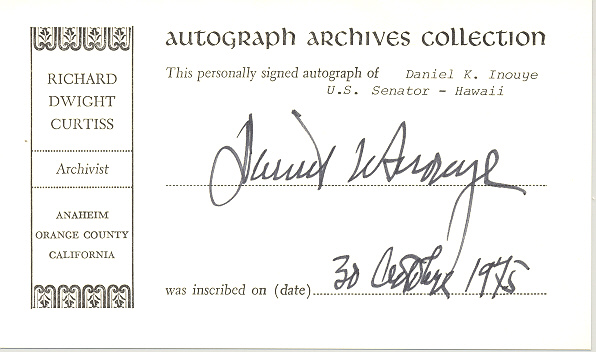 AUTOGRAPH ARCHIVES COLLECTION
RICHARD
DWIGHT
CURTISS
Archivist
ANAHEIM
ORANGE COUNTY
CALIFORNIA
This personally signed autograph of Daniel K. Inouye
U.S. Senator - Hawaii
Daniel K Inouye
was inscribed on (date) 30 October 1975